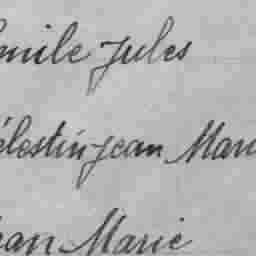 Emile Jules
Célestin Jean Marie
Jean Marie